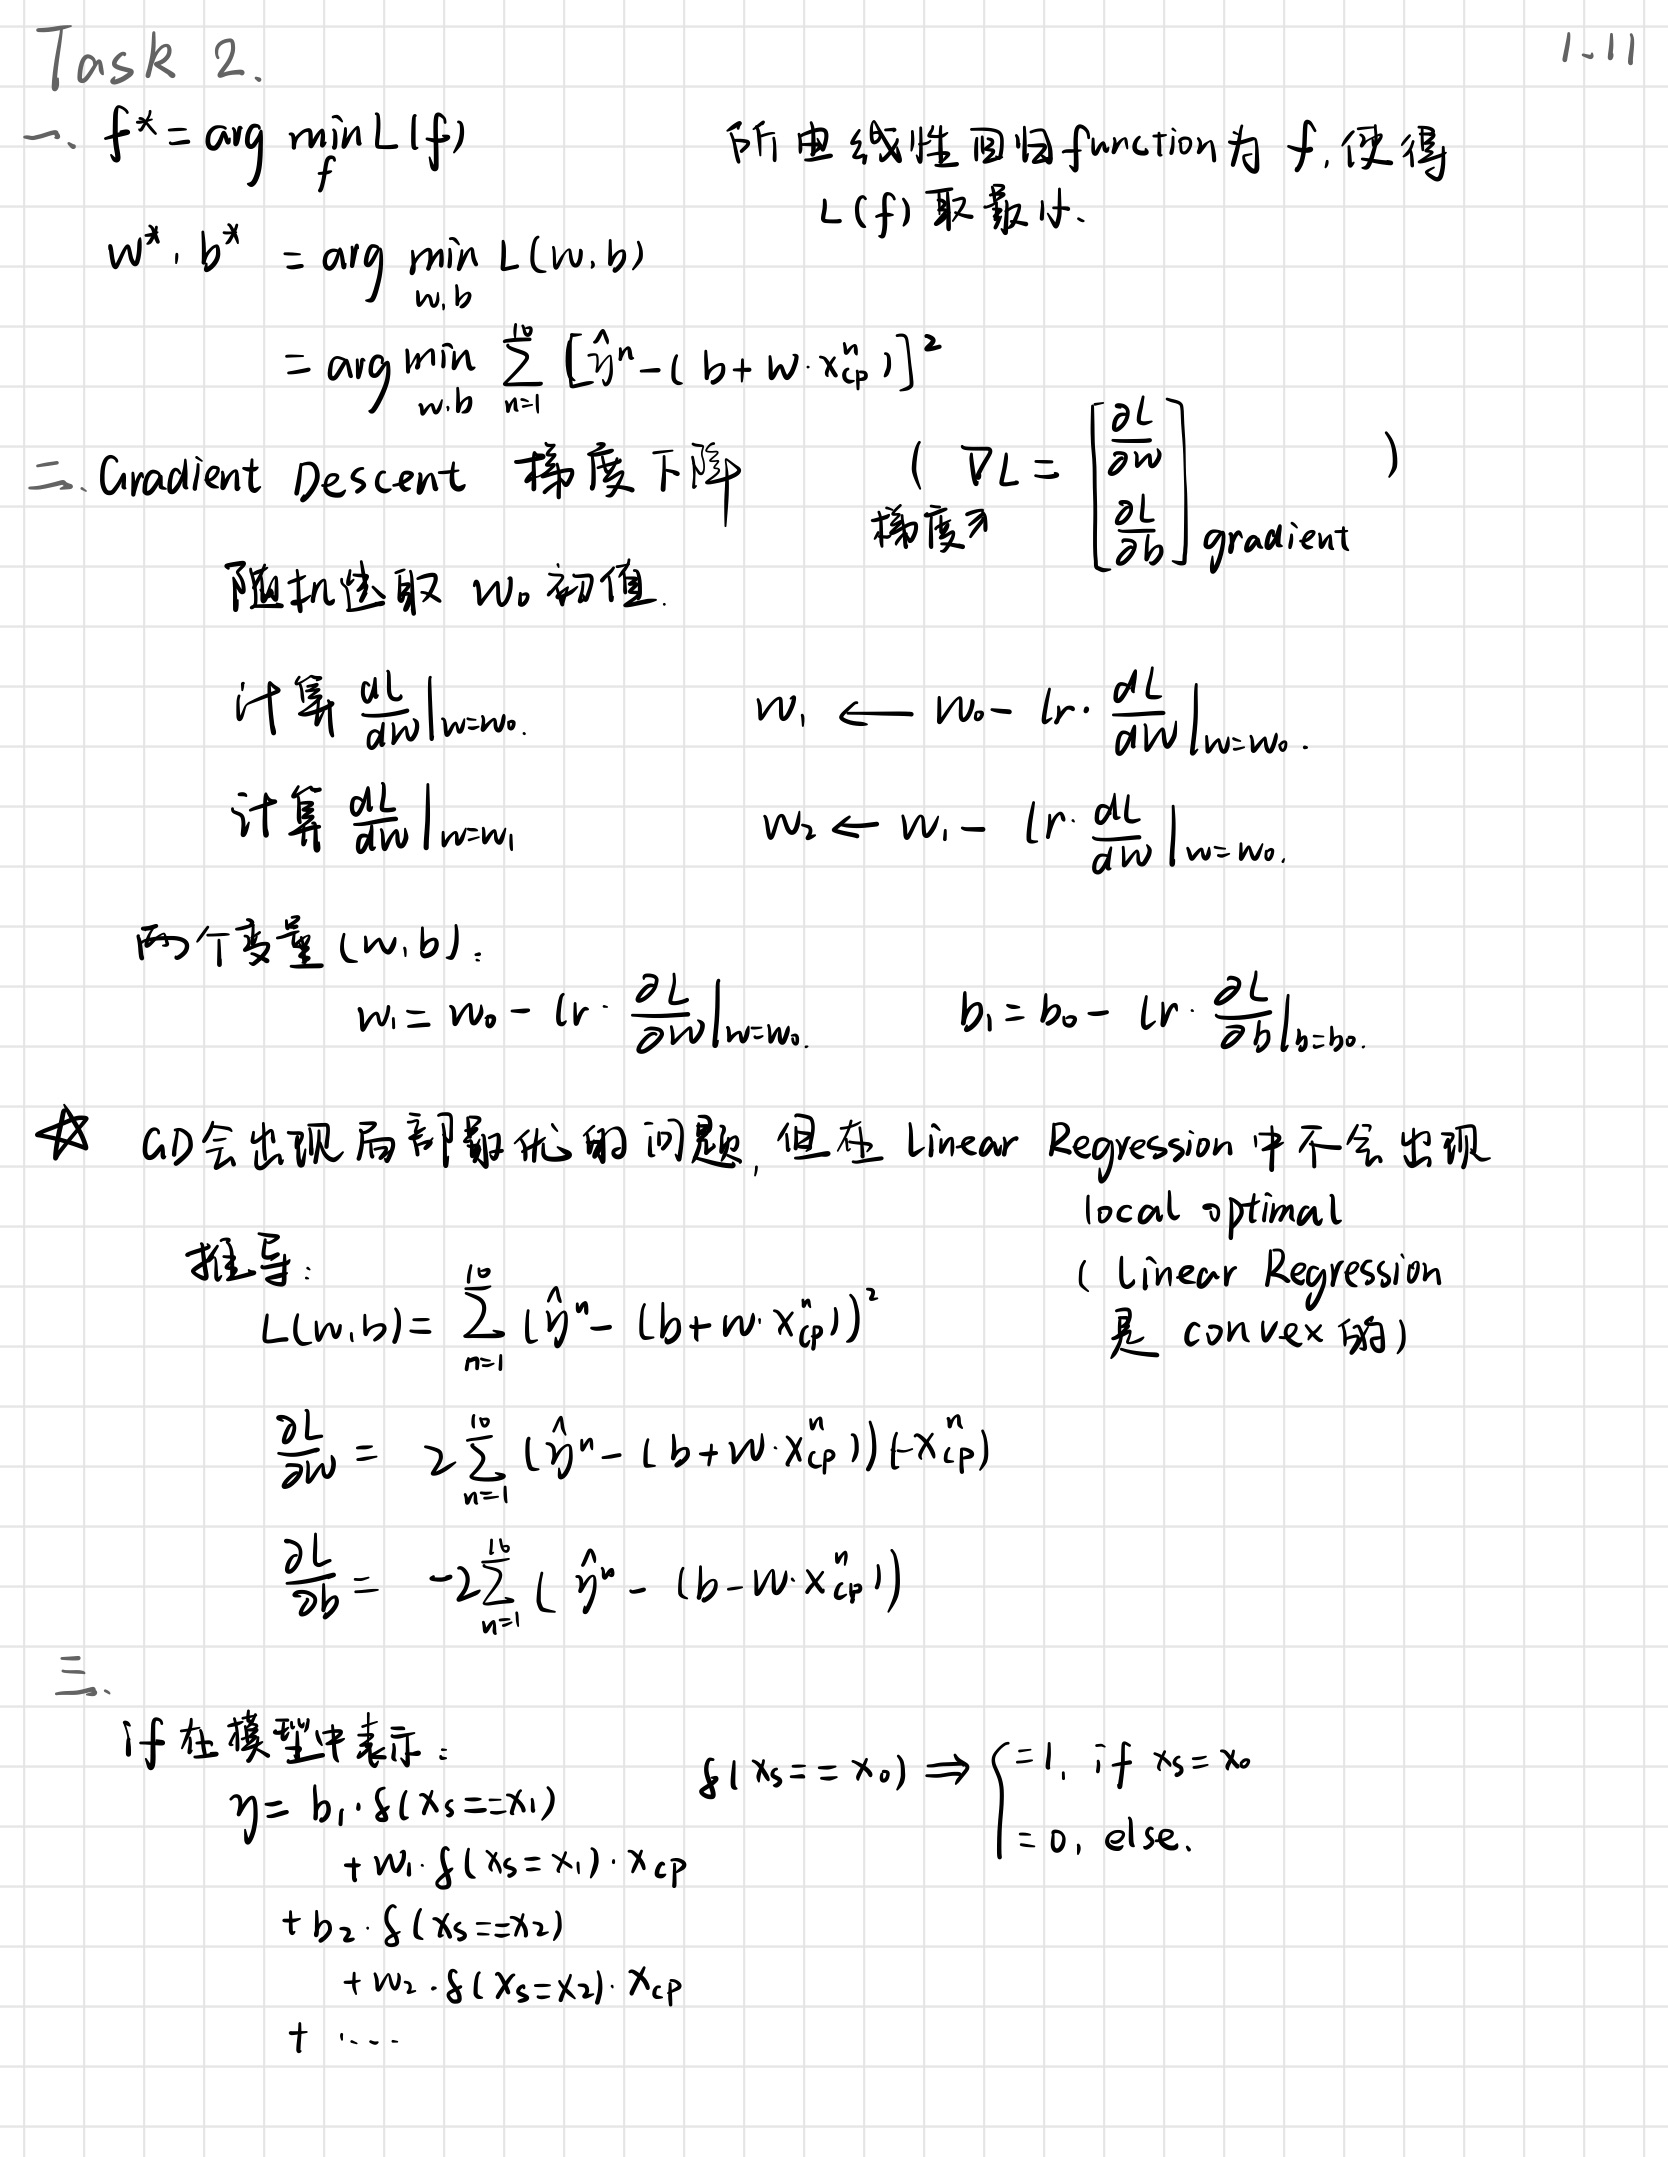 Task 2.
1.11
一、f* = arg min_f L(f)
所由线性回归function为 f,使得
L(f)取最小.
w*, b* = arg min_{w,b} L(w,b)
= arg min_{w,b} ∑_{n=1}^{10} [ŷ^n - (b + w·x_cp^n)]^2
二、Gradient Descent 梯度下降
(梯度 ∇L = [∂L/∂w ∂L/∂b] gradient)
随机选取 w₀ 初值.
计算 dL/dw|_{w=w₀}.
w₁ ← w₀ - lr· dL/dw|_{w=w₀}.
计算 dL/dw|_{w=w₁}
w₂ ← w₁ - lr· dL/dw|_{w=w₀}.
两个变量(w,b):
w₁ = w₀ - lr· ∂L/∂w|_{w=w₀}.
b₁ = b₀ - lr· ∂L/∂b|_{b=b₀}.
☆ GD会出现局部最优的问题,但在 Linear Regression 中不会出现
local optimal
(Linear Regression
是 convex 的)
推导:
L(w,b) = ∑_{n=1}^{10} (ŷ^n - (b + w·x_cp^n))^2
∂L/∂w = 2∑_{n=1}^{10} (ŷ^n - (b + w·x_cp^n))(-x_cp^n)
∂L/∂b = -2∑_{n=1}^{10} (ŷ^n - (b - w·x_cp^n))
三、
if 在模型中表示:
y = b₁·δ(x_s==x₁)
+ w₁·δ(x_s=x₁)·x_cp
+ b₂·δ(x_s==x₂)
+ w₂·δ(x_s=x₂)·x_cp
+ ....
δ(x_s==x₀) ⇒ { =1, if x_s=x₀
=0, else.